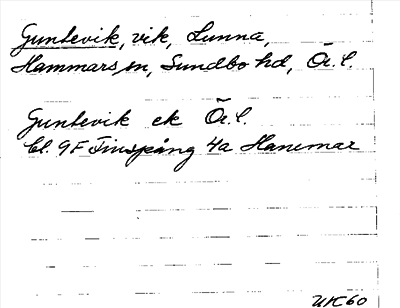 Guntevik, vik, Lunna,
Hammars sn, Sundbo hd, Ör. l.
Guntevik ek Ör. l.
bl. 9F Finspång 4a Hammar
UK 60